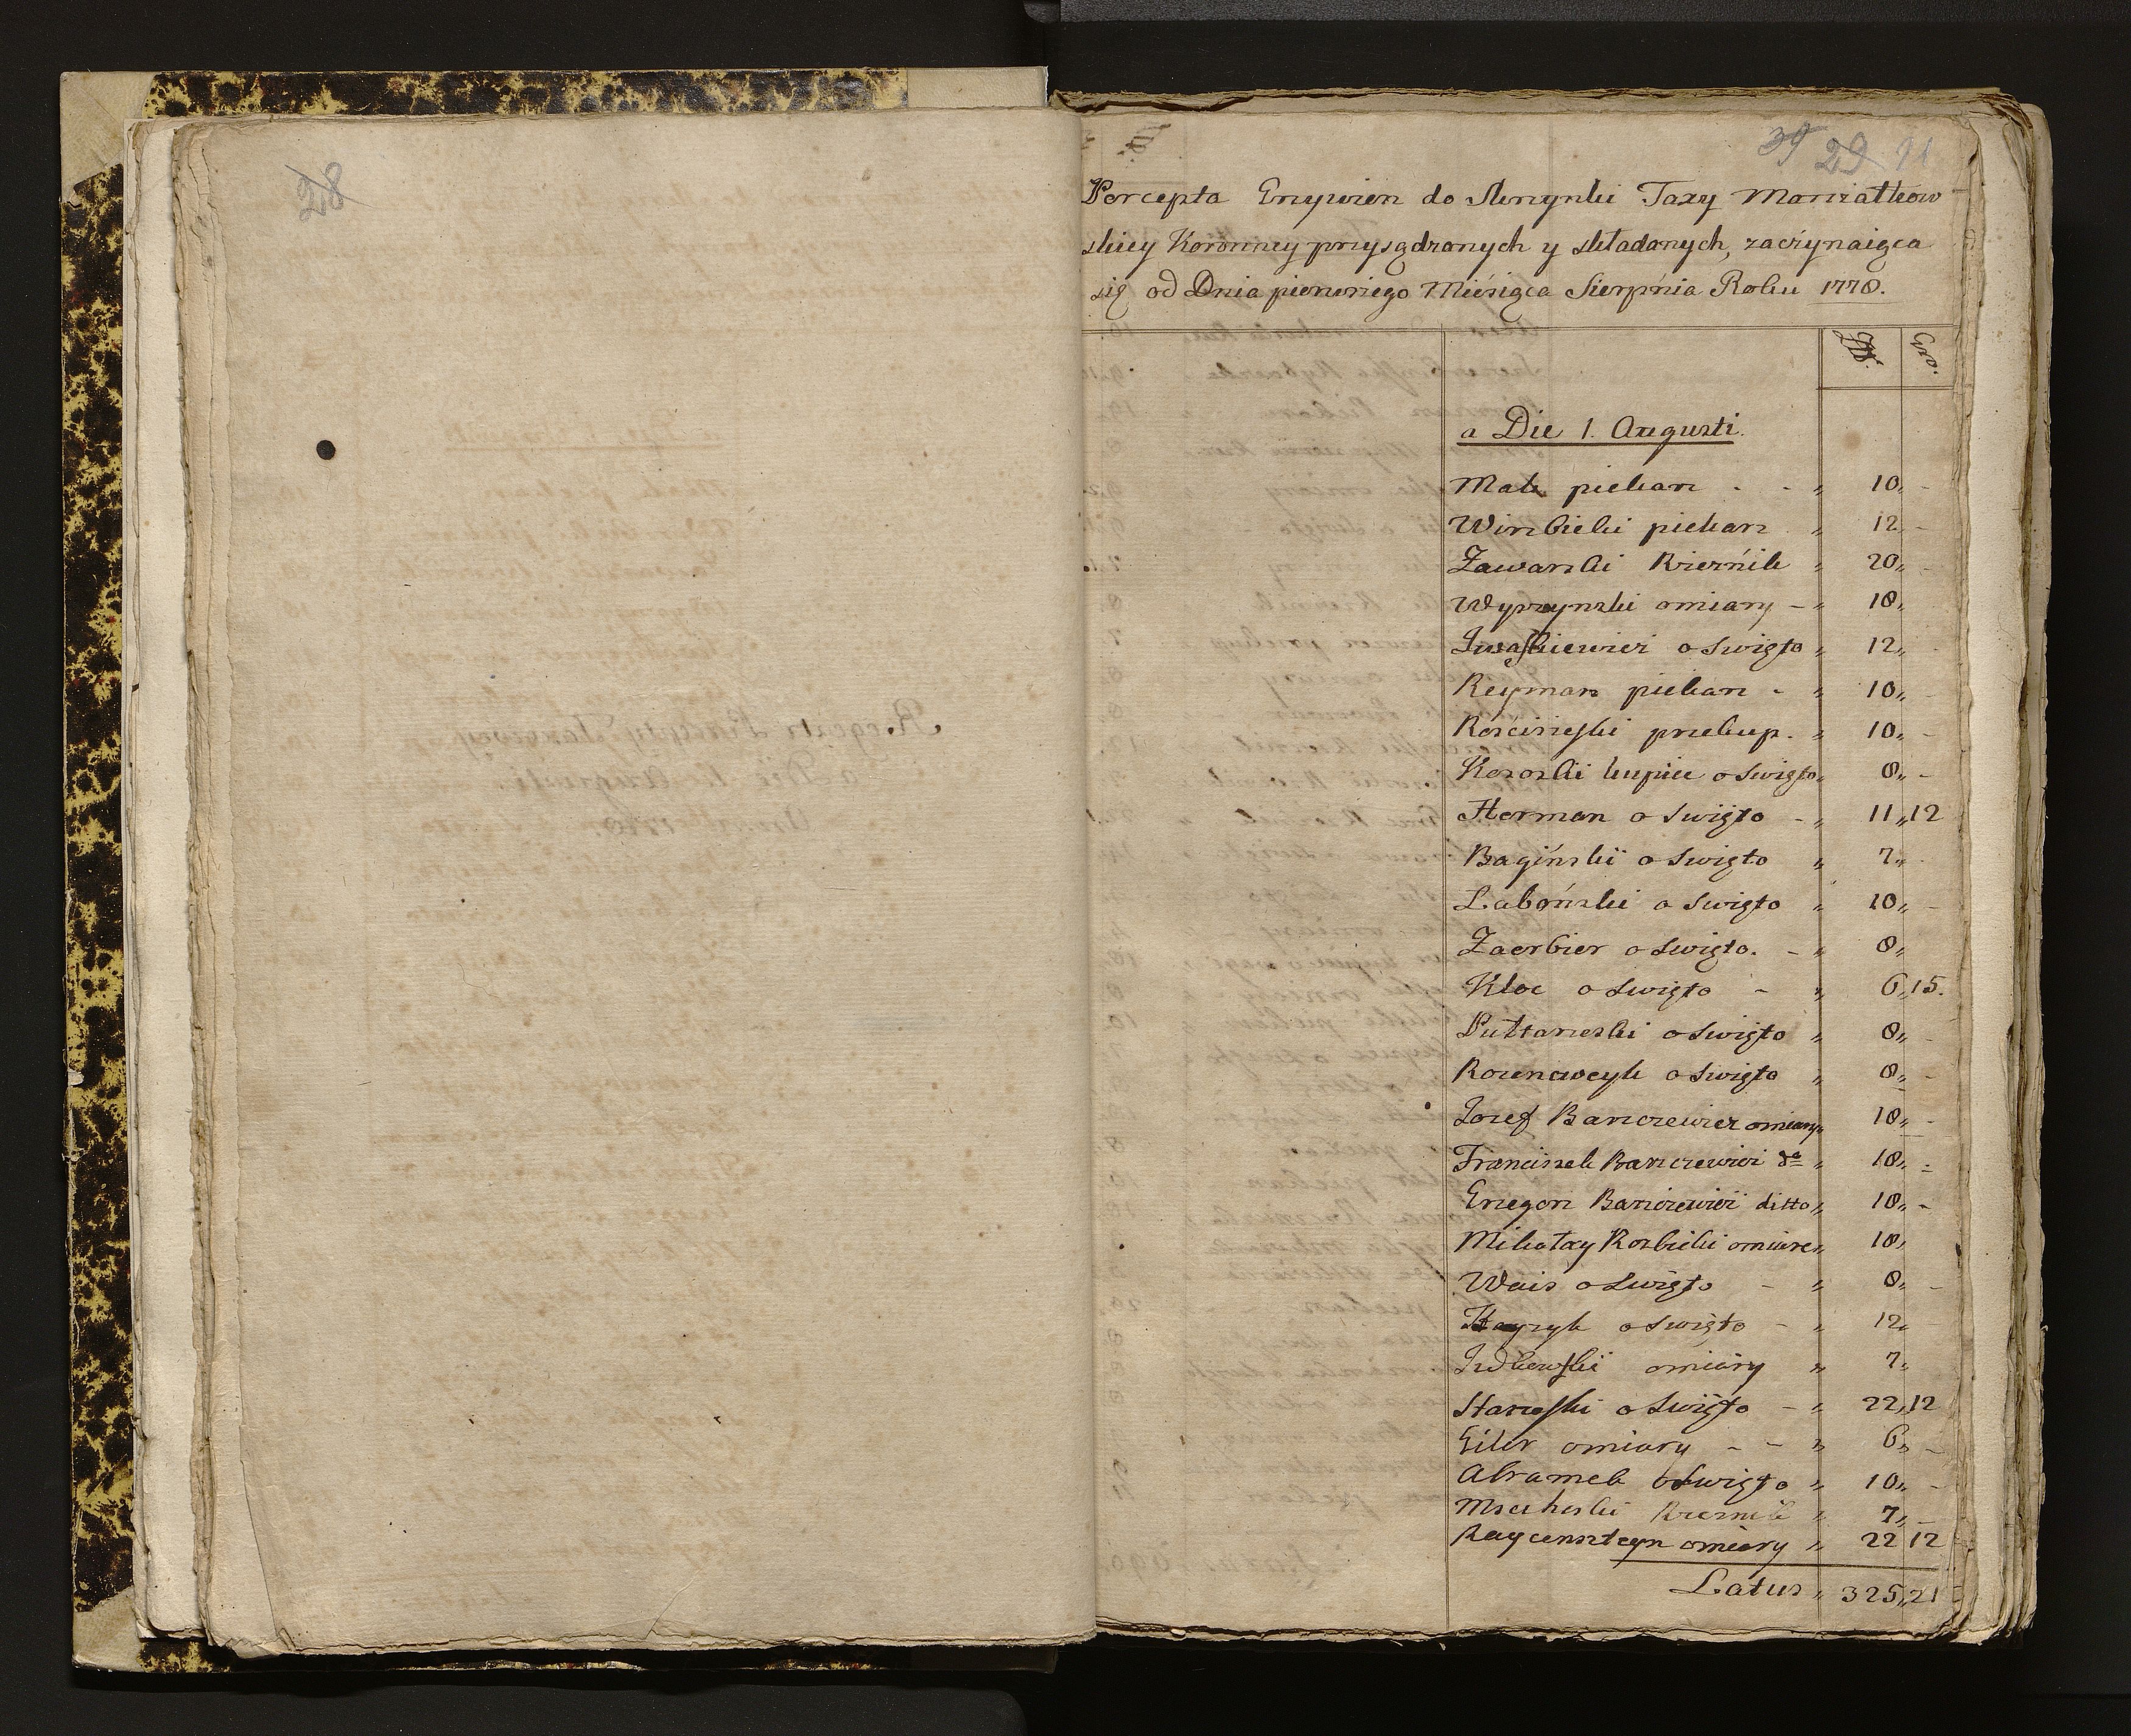 28
39 29 91
Percepta Grzywien do Skrzynki Taxy Marszałkow
skiey Koronney przysądzonych y składanych, zaczynaiąca
się od Dnia pierwszego Miesiąca Sierpnia Roku 1778.
Zł. Gr.
a Die 1. Augusti.
Mak piekarz - - " 10,, -
Wirzbicki piekarz " 12 -
Zawarski Rzeźnik " 20,, -
Wyprzynski o miary - " 18,,
Iwaszkiewicz o Swięto " 12,, -
Reyman piekarz - " 10,, -
Kościszeski przekup. " 10,, -
Kozoski kupiec o Swięto " 8,, -
Herman o Swięto - " 11,, 12
Bagiński o Swięto " 7,, -
Laboński o Swięto " 10,, -
Zaerbier o Swięto. - " 8,,
Kloc o Swięto - " 6,, 15.
Pułtarzeski o Swięto " 8,, -
Rozencweyk o Swięto " 8,, -
Jozef Banczewicz o miary " 18,, -
Franciszek Banczewicz do " 18,, -
Grzegorz Banczewicz ditto " 18,, -
Mikołay Rosbicki o miare " 18,
Wais o Swięto - " 8,, -
o Swięto - " 12,,
o miary " 7,
Starzeski o Swięto - " 22,, 12
Eiler o miary - - " 6,, -
Abramek o Swięto " 10,, -
Rzeznik " 7,, -
Raycenszteyn o miary " 22 12
Latus " 325,, 21